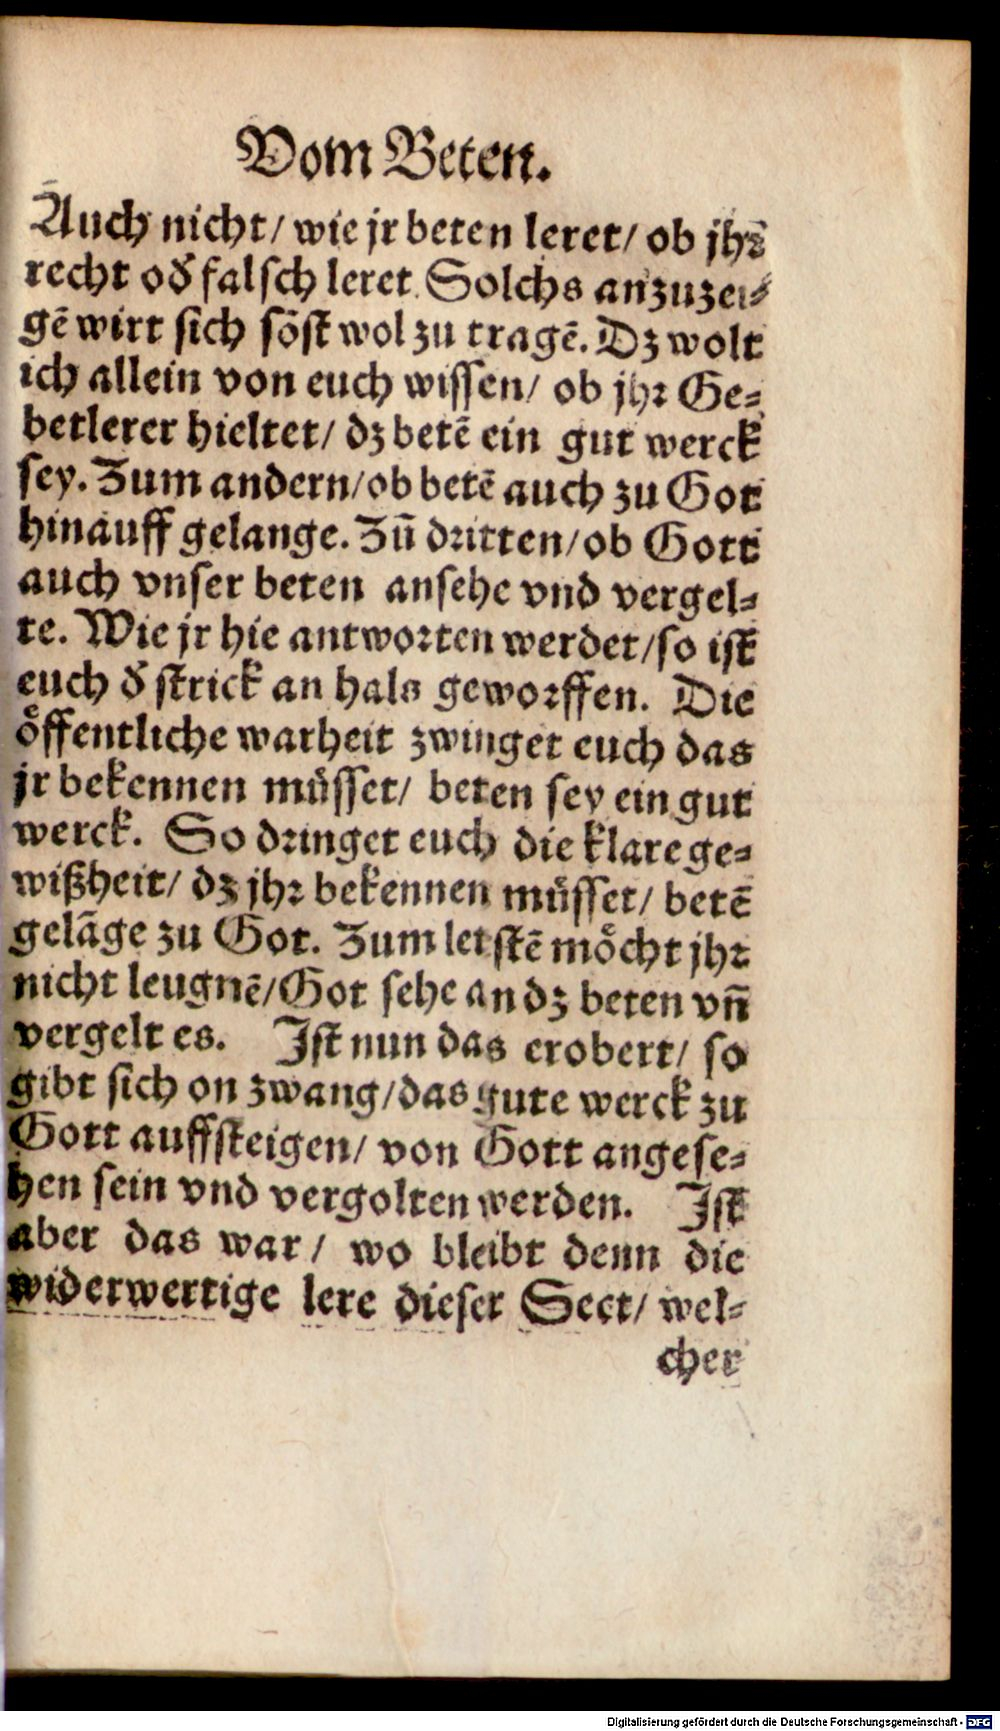 Vom Beten.
Auch nicht/ wie jr beten leret/ ob jhrs
recht oď falsch leret. Solchs anzuzei-
gē wirt sich sōst wol zu tragē. Dz wolt
ich allein von euch wissen/ ob jhr Ge-
betlerer hieltet/ dz betē ein gut werck
sey. Zum andern/ ob betē auch zu Got
hinauff gelange. Zū dritten/ ob Gott
auch vnser beten ansehe vnd vergel-
te. Wie jr hie antworten werdet/ so ist
euch ď strick an hals geworffen. Die
oͤffentliche warheit zwinget euch das
jr bekennen muͤsset/ beten sey ein gut
werck. So dringet euch die klare ge-
wißheit/ dz jhr bekennen muͤsset/ betē
gelāge zu Got. Zum letstē moͤcht jhr
nicht leugnē/ Got sehe an dz beten vn̄
vergelt es. Ist nun das erobert/ so
gibt sich on zwang/ das gute werck zu
Gott auffsteigen/ von Gott angese-
hen sein vnd vergolten werden. Ist
aber das war/ wo bleibt denn die
widerwertige lere dieser Sect/ wel-
cher
Digitalisierung gefördert durch die Deutsche Forschungsgemeinschaft - DFG